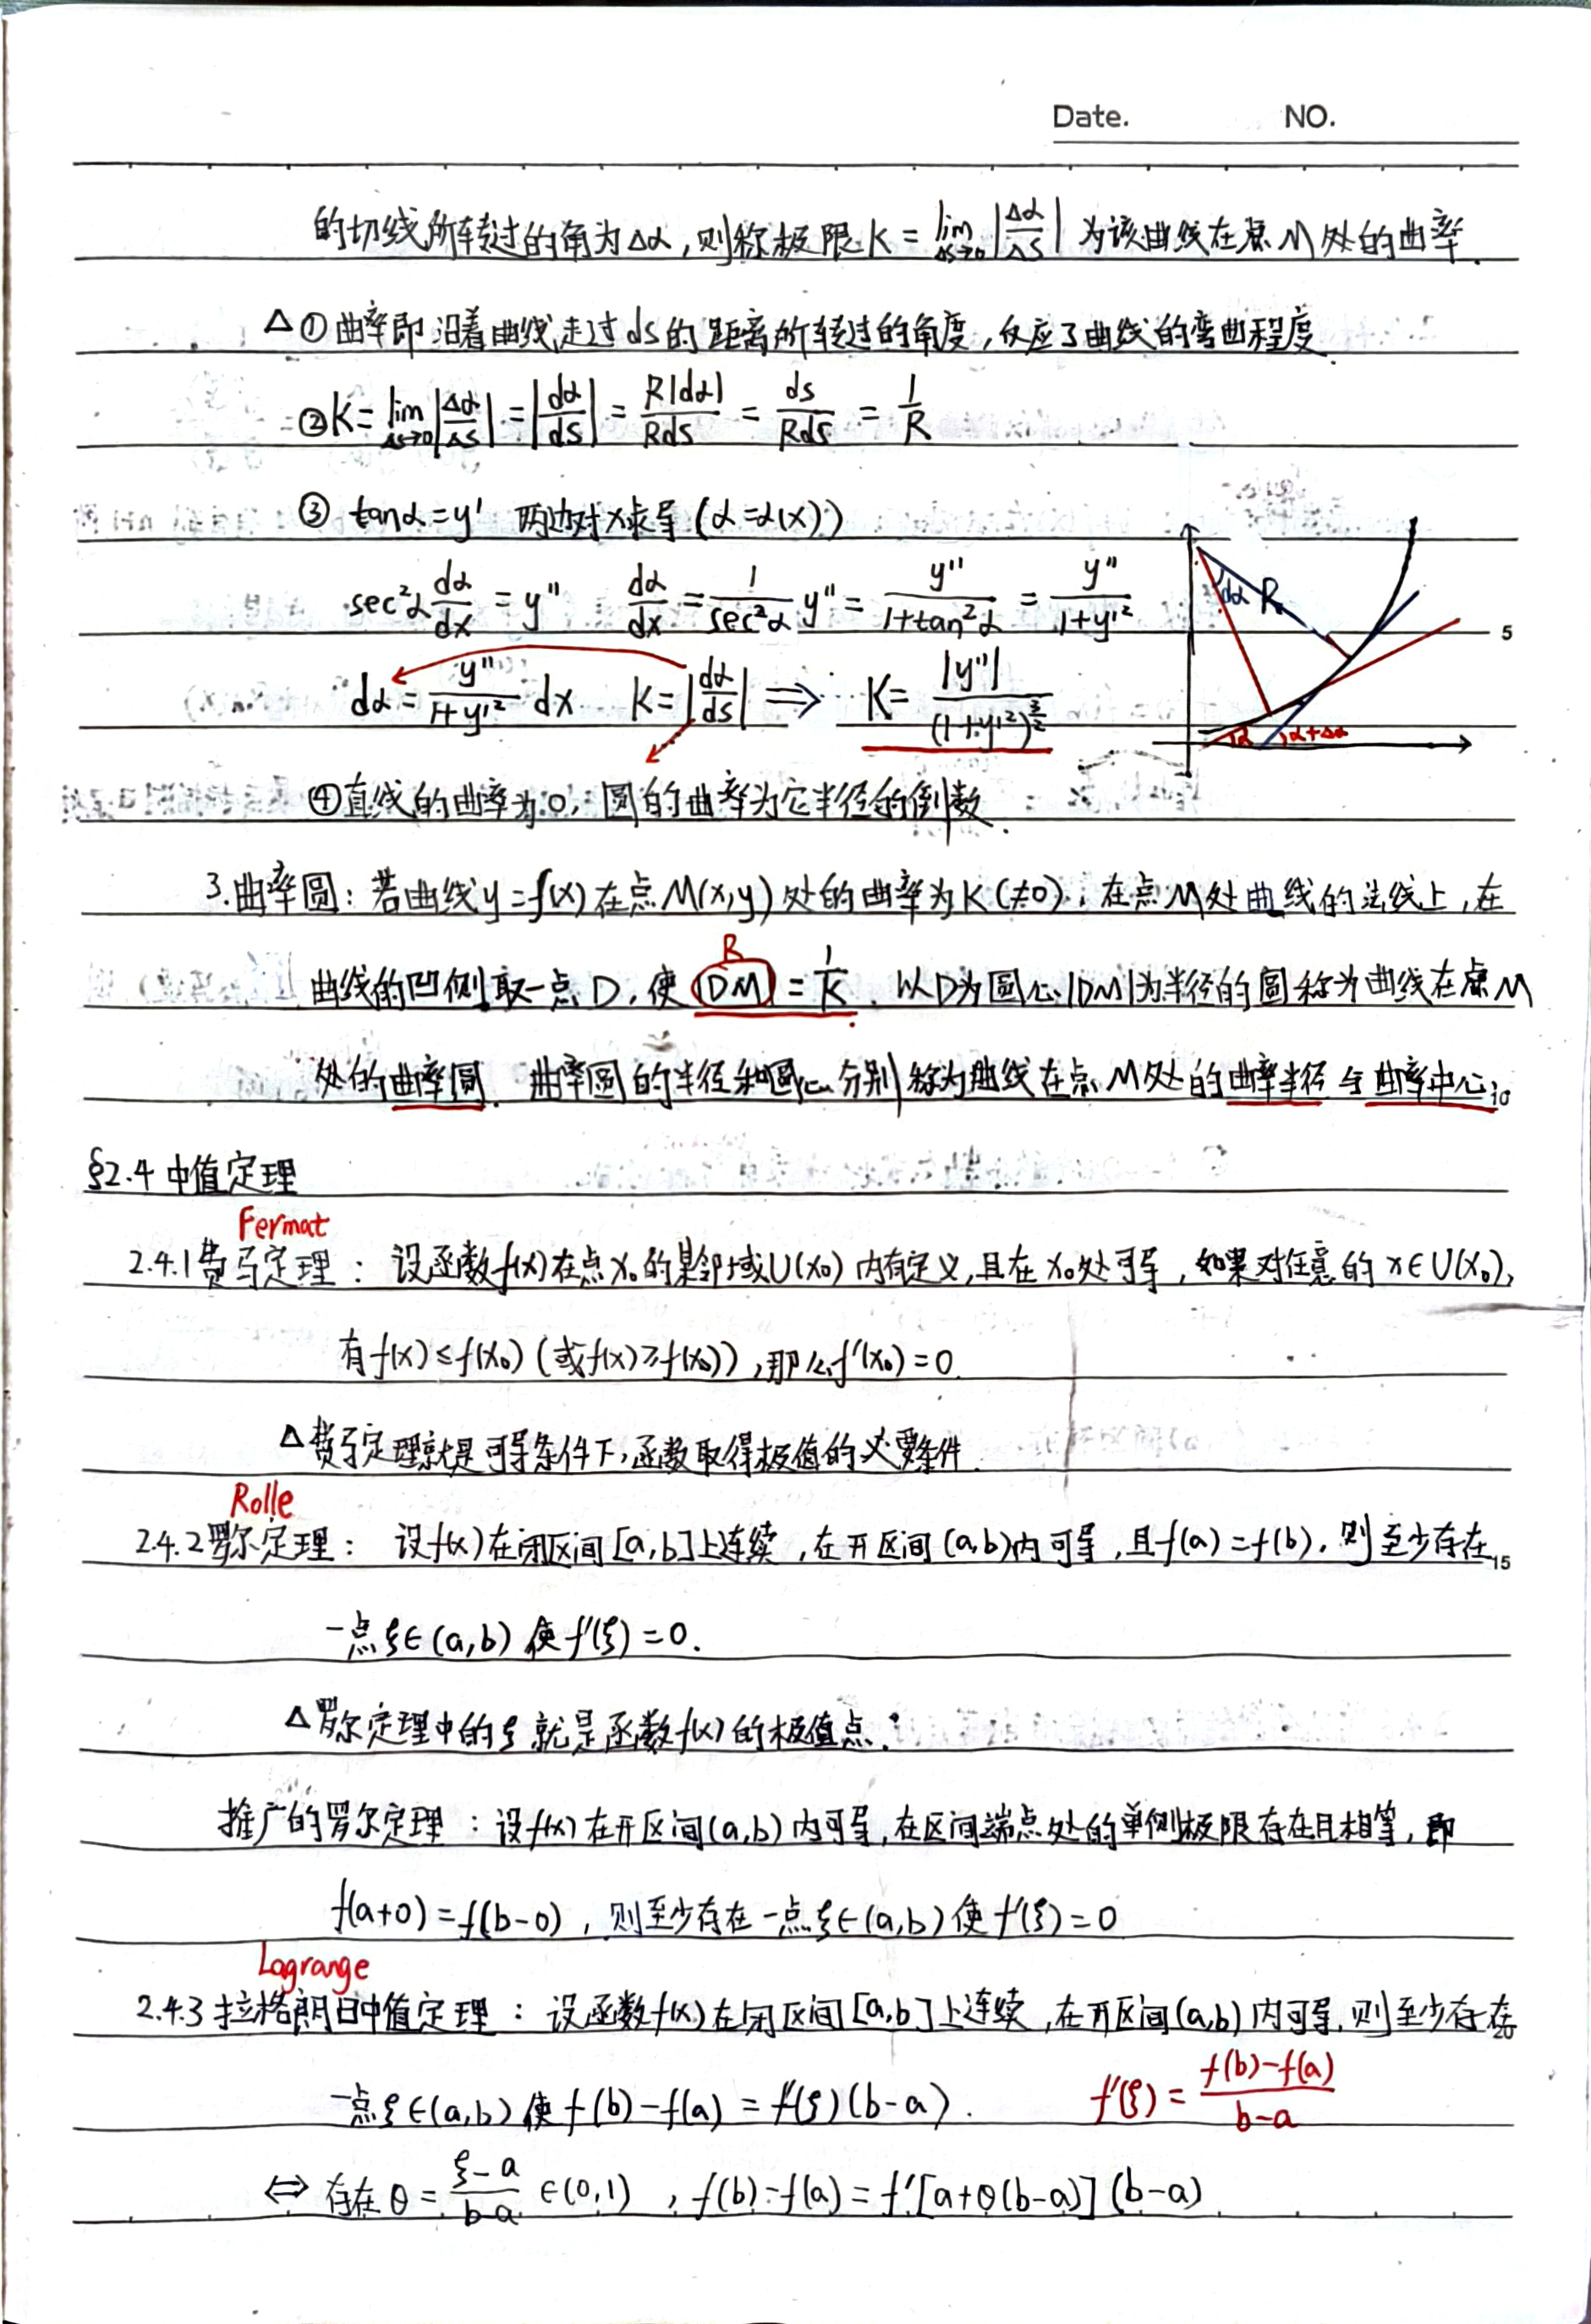 Date. NO.
的切线所转过的角为Δα,则称极限K = lim_{Δs→0} |Δα/ΔS| 为该曲线在点M处的曲率.
Δ①曲率即沿着曲线走过ds的距离所转过的角度,反应了曲线的弯曲程度.
②K = lim_{Δs→0} |Δα/ΔS| = |dα/ds| = R|dα|/Rds = ds/Rds = 1/R
③ tanα = y' 两边对x求导 (α=α(x))
sec²α dα/dx = y'' dα/dx = 1/sec²α y'' = y''/1+tan²α = y''/1+y'²
dα R
5
dα = y''/1+y'² dx K = |dα/ds| ⇒ K = |y''|/(1+y'²)^{3/2}
α α+Δα
④直线的曲率为0,圆的曲率为它半径的倒数.
3.曲率圆:若曲线y=f(x)在点M(x,y)处的曲率为K(≠0),在点M处曲线的法线上,在
R
曲线的凹侧取一点D,使|DM| = 1/K.以D为圆心,|DM|为半径的圆称为曲线在点M
处的曲率圆.曲率圆的半径和圆心分别称为曲线在点M处的曲率半径与曲率中心. 10
§2.4 中值定理
Fermat
2.4.1费马定理: 设函数f(x)在点x₀的某邻域U(x₀)内有定义,且在x₀处可导,如果对任意的x∈U(x₀),
有f(x)≤f(x₀)(或f(x)≥f(x₀)),那么f'(x₀)=0.
Δ费马定理就是可导条件下,函数取得极值的必要条件.
Rolle
2.4.2罗尔定理: 设f(x)在闭区间[a,b]上连续,在开区间(a,b)内可导,且f(a)=f(b),则至少存在 15
一点ξ∈(a,b)使f'(ξ)=0.
Δ罗尔定理中的ξ就是函数f(x)的极值点.
推广的罗尔定理:设f(x)在开区间(a,b)内可导,在区间端点处的单侧极限存在且相等,即
f(a+0)=f(b-0),则至少存在一点ξ∈(a,b)使f'(ξ)=0
Lagrange
2.4.3拉格朗日中值定理:设函数f(x)在闭区间[a,b]上连续,在开区间(a,b)内可导,则至少存在 20
一点ξ∈(a,b)使f(b)-f(a)=f'(ξ)(b-a). f'(ξ) = f(b)-f(a)/b-a
⇔ 存在θ = ξ-a/b-a ∈(0,1),f(b)-f(a)=f'[a+θ(b-a)](b-a)